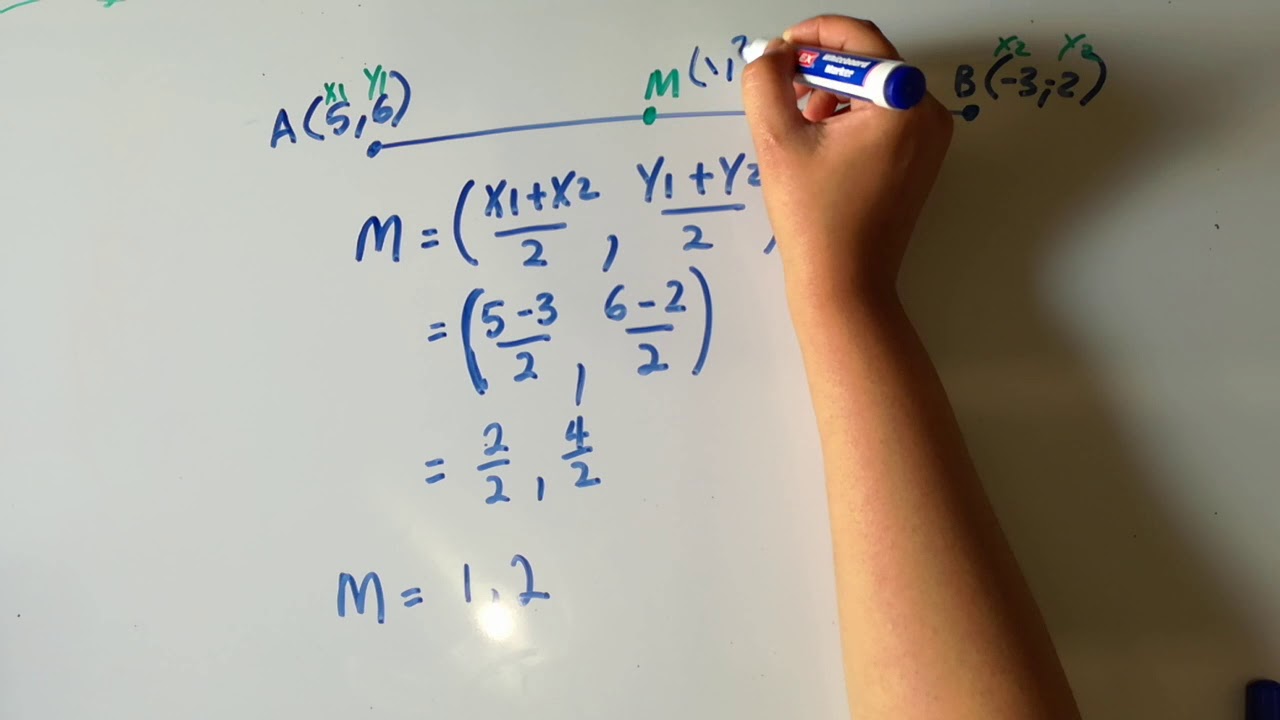 X1 Y1
X2 Y2
A(5,6)
M (1,
B(-3,-2)
EX Whiteboard Marker
M = (X1+X2/2 , Y1+Y2/2
= (5-3/2 , 6-2/2)
= 2/2 , 4/2
M = 1, 2